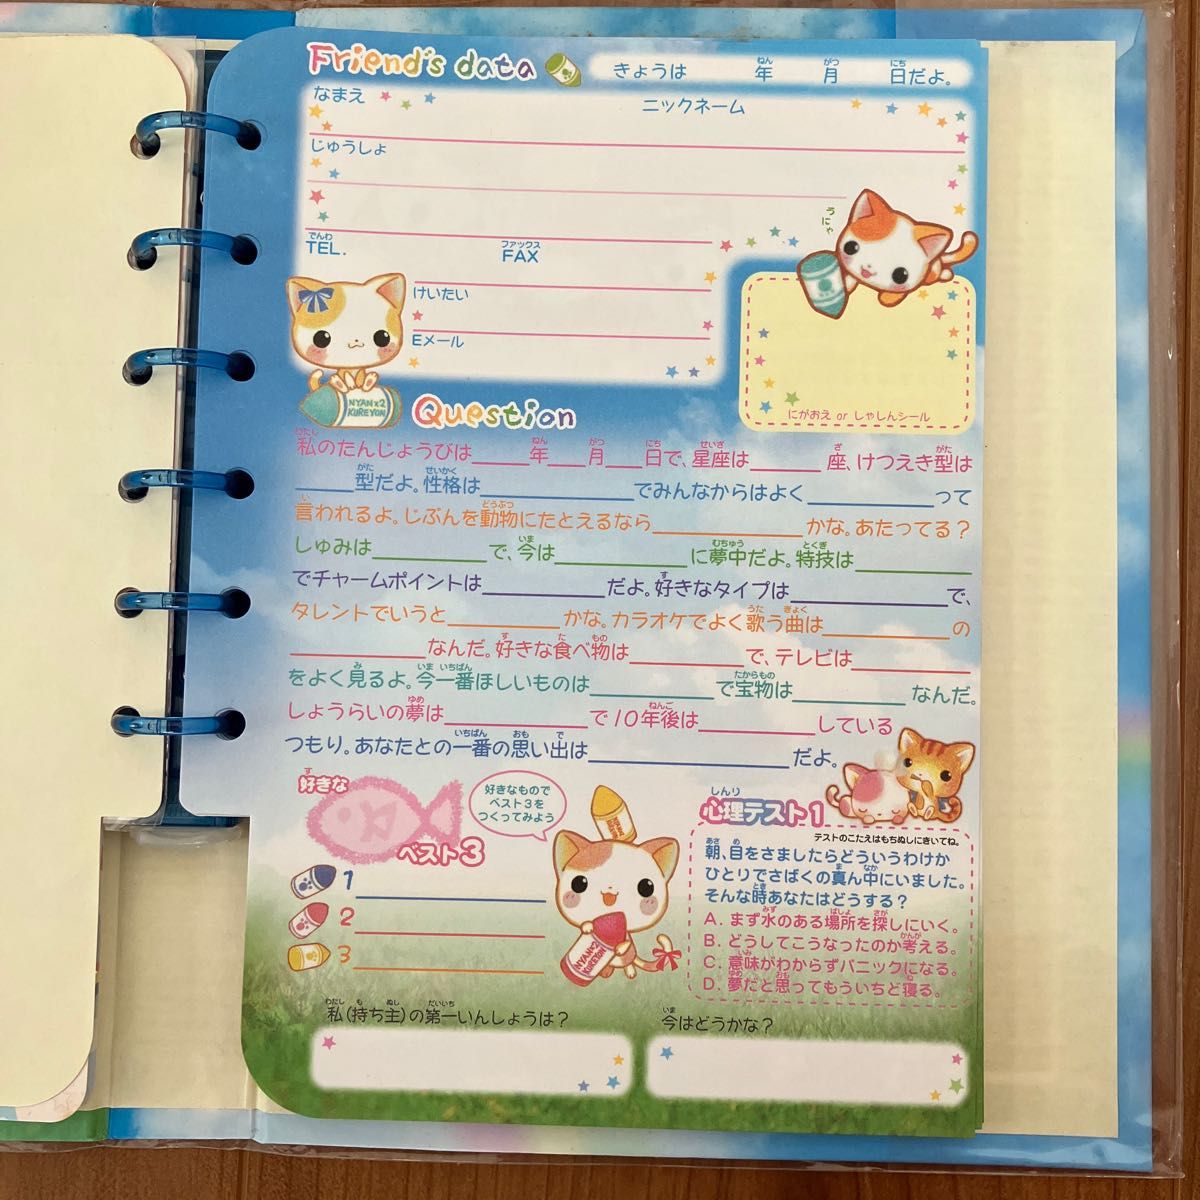 Friend's data
きょうは 年 月 日だよ。
なまえ ニックネーム
じゅうしょ
うにゃ
TEL. FAX
けいたい
Eメール
NYAN×2
KUREYON
にがおえ or しゃしんシール
Question
私のたんじょうびは_____年___月___日で、星座は_____座、けつえき型は
____型だよ。性格は__________でみんなからはよく________って
言われるよ。じぶんを動物にたとえるなら__________かな。あたってる？
しゅみは________で、今は_________に夢中だよ。特技は________
でチャームポイントは________だよ。好きなタイプは__________で、
タレントでいうと_______かな。カラオケでよく歌う曲は________の
_________なんだ。好きな食べ物は_______で、テレビは________
をよく見るよ。今一番ほしいものは________で宝物は_______なんだ。
しょうらいの夢は_________で10年後は_______している
つもり。あなたとの一番の思い出は____________だよ。
好きな
ベスト3
好きなもので
ベスト3を
つくってみよう
1
2
3
NYAN×2
KUREYON
心理テスト1
テストのこたえはもちぬしにきいてね。
朝、目をさましたらどういうわけか
ひとりでさばくの真ん中にいました。
そんな時あなたはどうする？
A. まず水のある場所を探しにいく。
B. どうしてこうなったのか考える。
C. 意味がわからずパニックになる。
D. 夢だと思ってもういちど寝る。
私(持ち主)の第一いんしょうは？
今はどうかな？